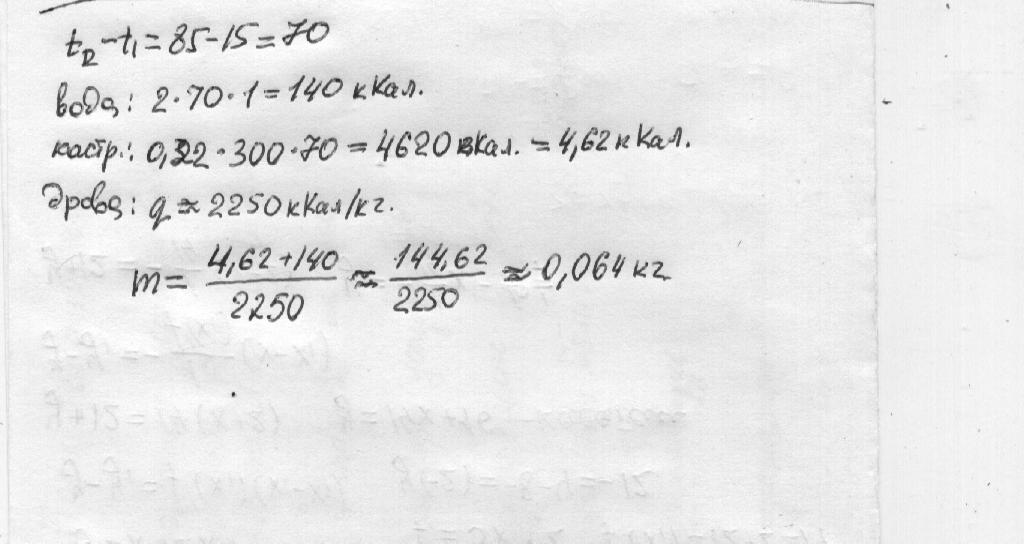 t₂-t₁=85-15=70
вода: 2·70·1=140 кКал.
кастр.: 0,22·300·70=4620 кал.=4,62 кКал.
дрова: q≈2250 кКал/кг.
m= (4,62+140)/2250 ≈ 144,62/2250 ≈ 0,064 кг